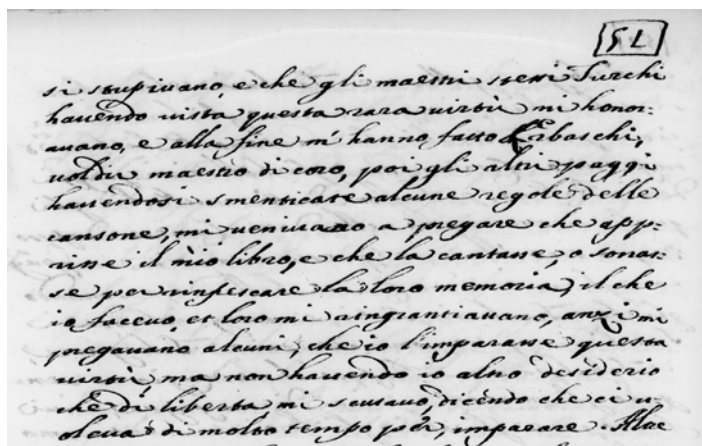 51
si stupivano, e che gli maestri stessi Turchi
havendo vista questa rara virtù mi honor:
avano, e alla fine m'hanno fatto Erbaschi,
vol dir maestro di coro, poi gli altri paggi
havendosi smenticate alcune regole delle
cansone, mi venivano a pregare che app:
risse il mio libro, e che la cantasse, o sonas:
se per rinfescare la loro memoria, il che
io facevo, et loro mi ringrantiavano, anzi mi
pregavano alcuni, che io l'imparasse questa
virtù, ma non havendo io altro desiderio
che di libertà, mi scusavo, dicendo che ci v:
oleva di molto tempo per imparare.